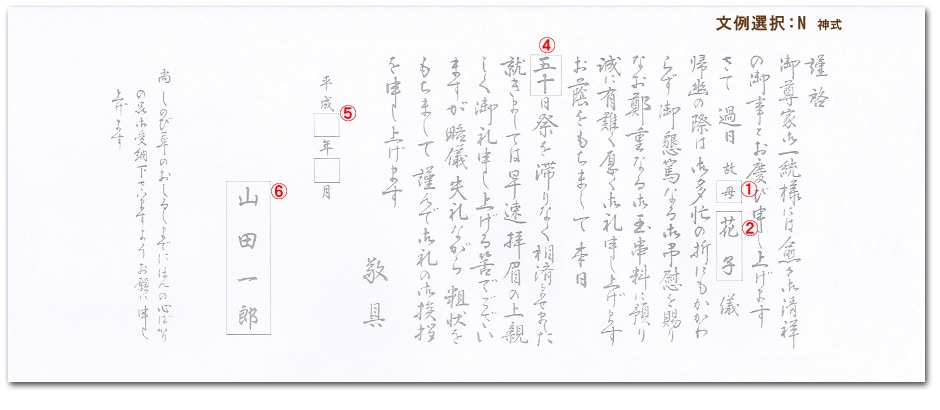 文例選択：N 神式
謹啓
御尊家御一統様には愈々御清祥
の御事とお慶び申し上げます
さて 過日 故 母 ① 花子 ② 儀
帰幽の際は御多忙の折にもかかわ
らず御懇篤なる御弔慰を賜り
なお鄭重なる御玉串料に預り
誠に有難く厚く御礼申し上げます
お蔭をもちまして 本日
④ 五十日祭を滞りなく相済ませました
就きましては早速拝眉の上親
しく御礼申し上げる筈でござい
ますが略儀失礼ながら粗状を
もちまして謹んで御礼の御挨拶
を申し上げます
敬具
平成 ⑤ 年 月
⑥ 山田一郎
尚 しのび草のおしるしまでにほんの心ばかり
の品御受納下さいますようお願い申し
上げます